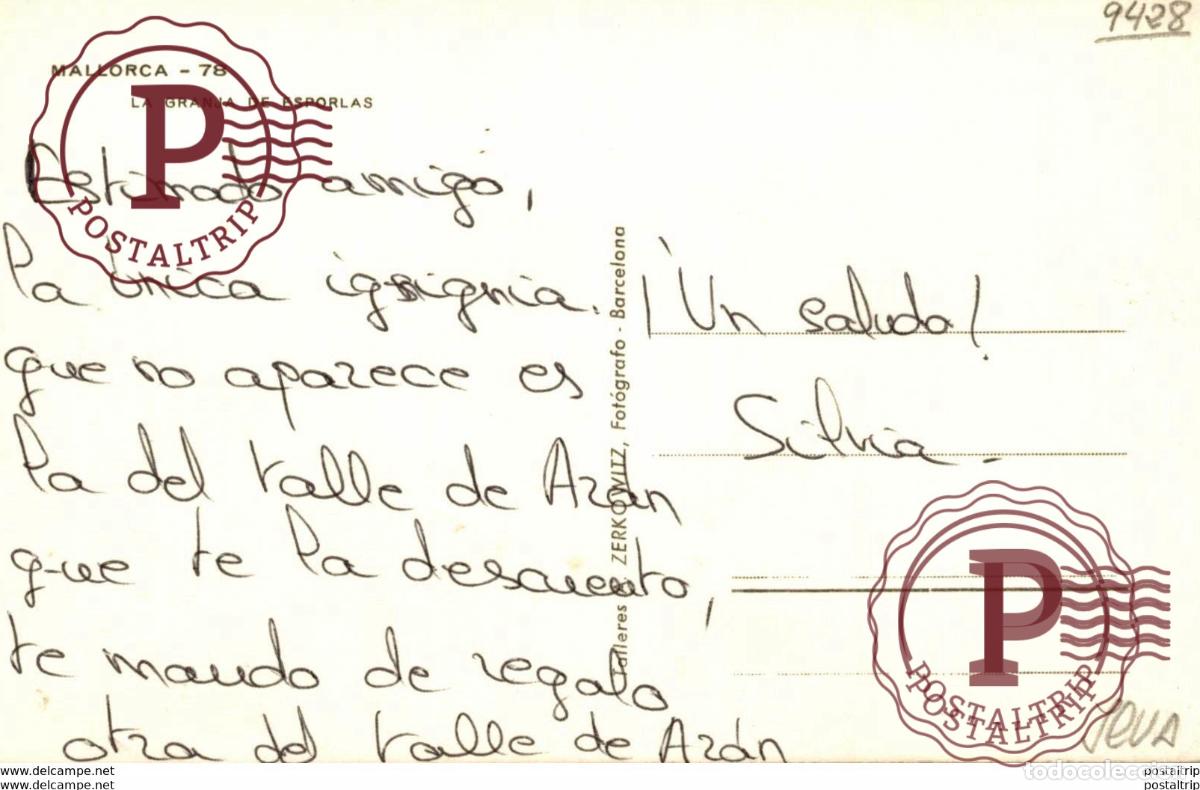 9428
MALLORCA - 78
LA GRANJA DE ESPORLAS
Estimado amigo,
la única igsignia.
que no aparece es
la del valle de Azán
que te la descuento,
te mando de regalo
otra del valle de Azán
Talleres ZERKOWITZ, Fotógrafo - Barcelona
¡Un saludo!
Silvia.
P
POSTALTRIP
P
POSTALTRIP
POSTALTRIP
www.delcampe.net
www.delcampe.net
todocoleccion
postaltrip
postaltrip